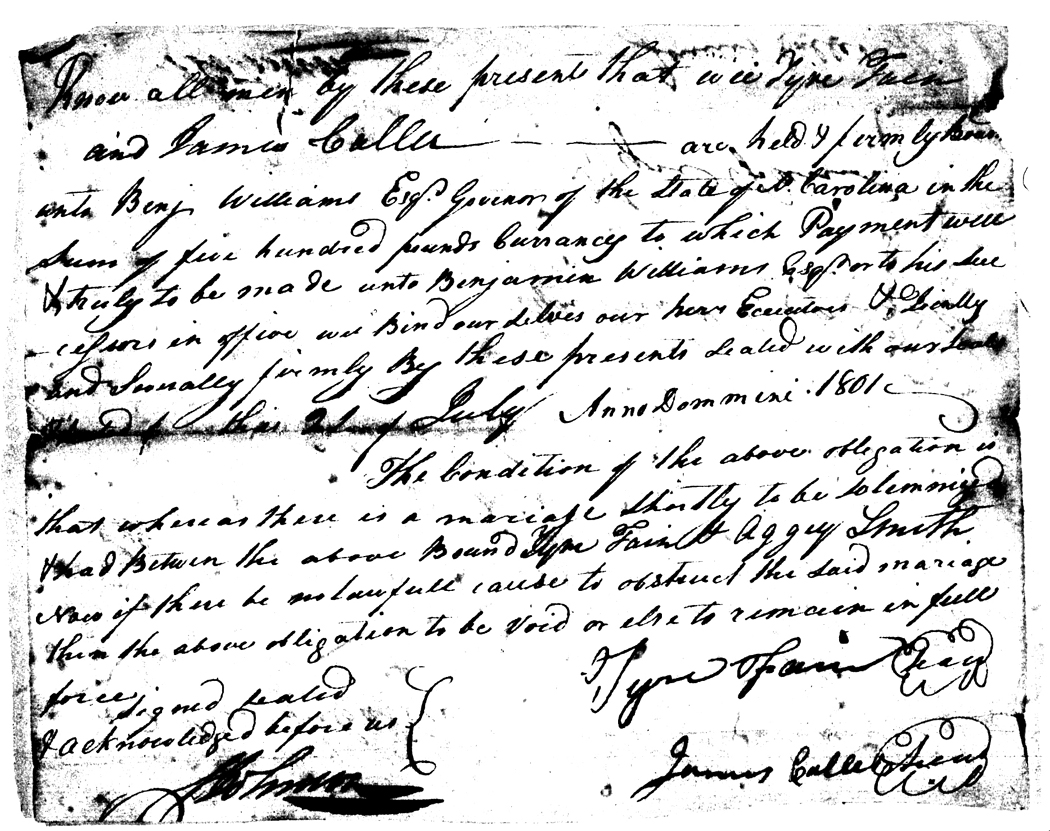 Know all men by these present that wee Tyre Fain
and James Caller — — are held & firmly boun
unto Benj Williams Esqr. Govenor of the State of N. Carolina in the
Sum of five hundred pounds Currancy to which Payment well
& truly to be made unto Benjamin Williams Esqr or to his Suc
cessors in office we Bind our selves our heirs Executors & Jointly
and Severally firmly By these presents sealed with our Seals
this 21 of July Anno Dommini 1801
The Condition of the above obligation is
that whereas there is a mariage shortly to be solemnized
& had Betwen the above Bound Tyre Fain & Aggey Smith
Now if there be no lawfull cause to obstruct the said mariage
then the above obligation to be void or else to remain in full
force
Signed Sealed
& acknowledged before us
Tyre Fain Seal
James Caller Seal